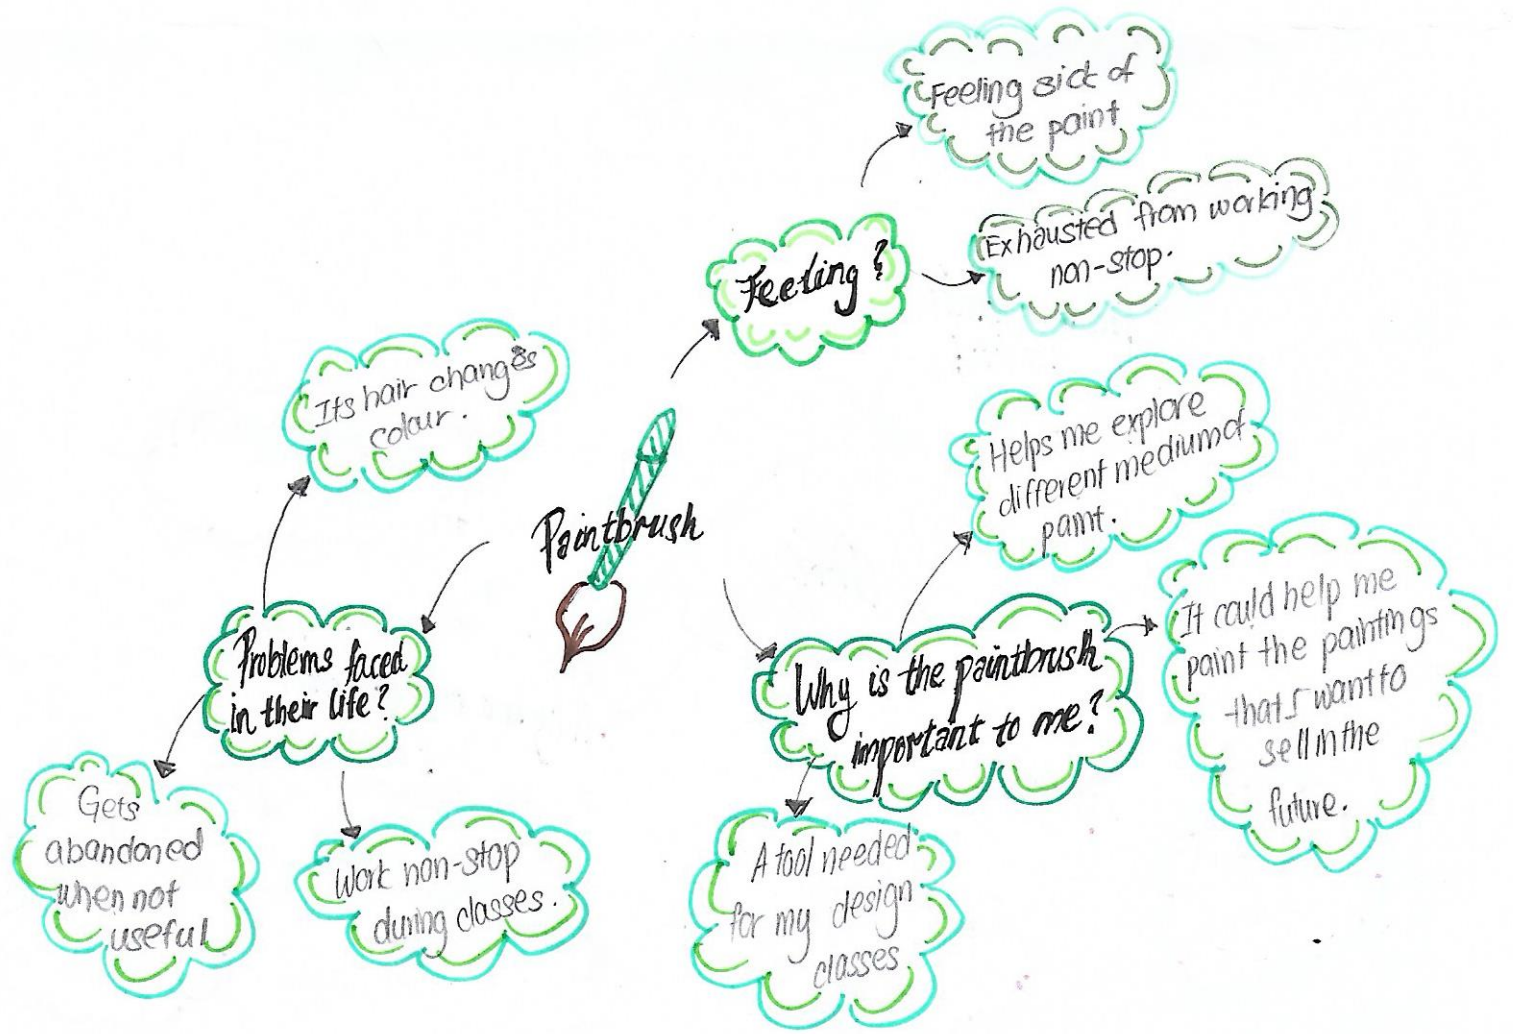 Paintbrush
Feeling?
Feeling sick of
the paint
Exhausted from working
non-stop.
Problems faced
in their life?
Its hair changes
colour.
Gets
abandoned
when not
useful
Work non-stop
during classes.
Why is the paintbrush
important to me?
Helps me explore
different medium of
paint.
It could help me
paint the paintings
that I want to
sell in the
future.
A tool needed
for my design
classes